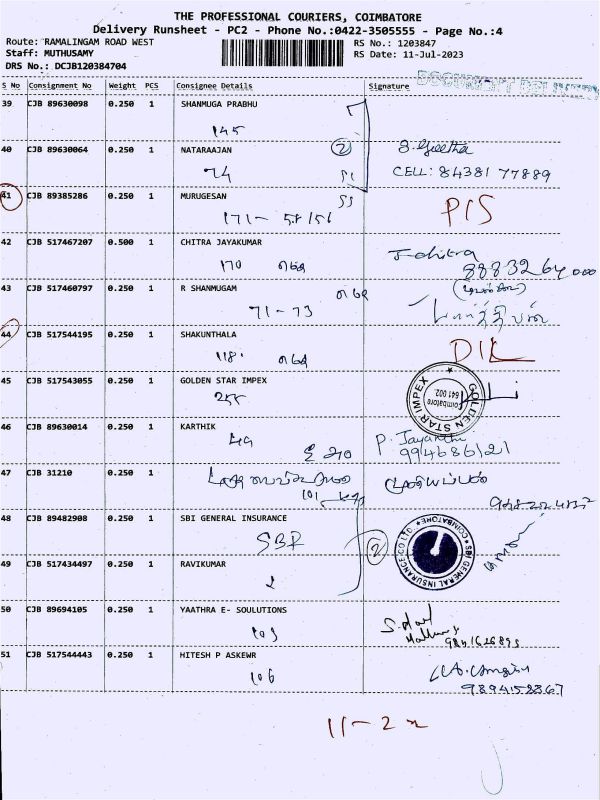 THE PROFESSIONAL COURIERS, COIMBATORE
Delivery Runsheet - PC2 - Phone No.:0422-3505555 - Page No.:4
Route: RAMALINGAM ROAD WEST
RS No.: 1203847
Staff: MUTHUSAMY
RS Date: 11-Jul-2023
DRS No.: DCJB120384704
S No Consignment No Weight PCS Consignee Details Signature
39 CJB 89630098 0.250 1 SHANMUGA PRABHU
145
40 CJB 89630064 0.250 1 NATARAAJAN 2 S. Geetha
74 51 CELL: 84381 77889
41 CJB 89385286 0.250 1 MURUGESAN 55
171 - 58/56 P/S
42 CJB 517467207 0.500 1 CHITRA JAYAKUMAR J-chitra
170 8883264000
43 CJB 517460797 0.250 1 R SHANMUGAM
71 - 73
44 CJB 517544195 0.250 1 SHAKUNTHALA D/L
118
45 CJB 517543055 0.250 1 GOLDEN STAR IMPEX GOLDEN STAR IMPEX Coimbatore 641 002
46 CJB 89630014 0.250 1 KARTHIK P. Jayanthi
47 CJB 31210 0.250 1
101
48 CJB 89482908 0.250 1 SBI GENERAL INSURANCE
SBI 2 SBI GENERAL INSURANCE CO LTD. COIMBATORE
49 CJB 517434497 0.250 1 RAVIKUMAR
2
50 CJB 89694105 0.250 1 YAATHRA E- SOULUTIONS
103
51 CJB 517544443 0.250 1 HITESH P ASKEWR
106 9894158367
11-2